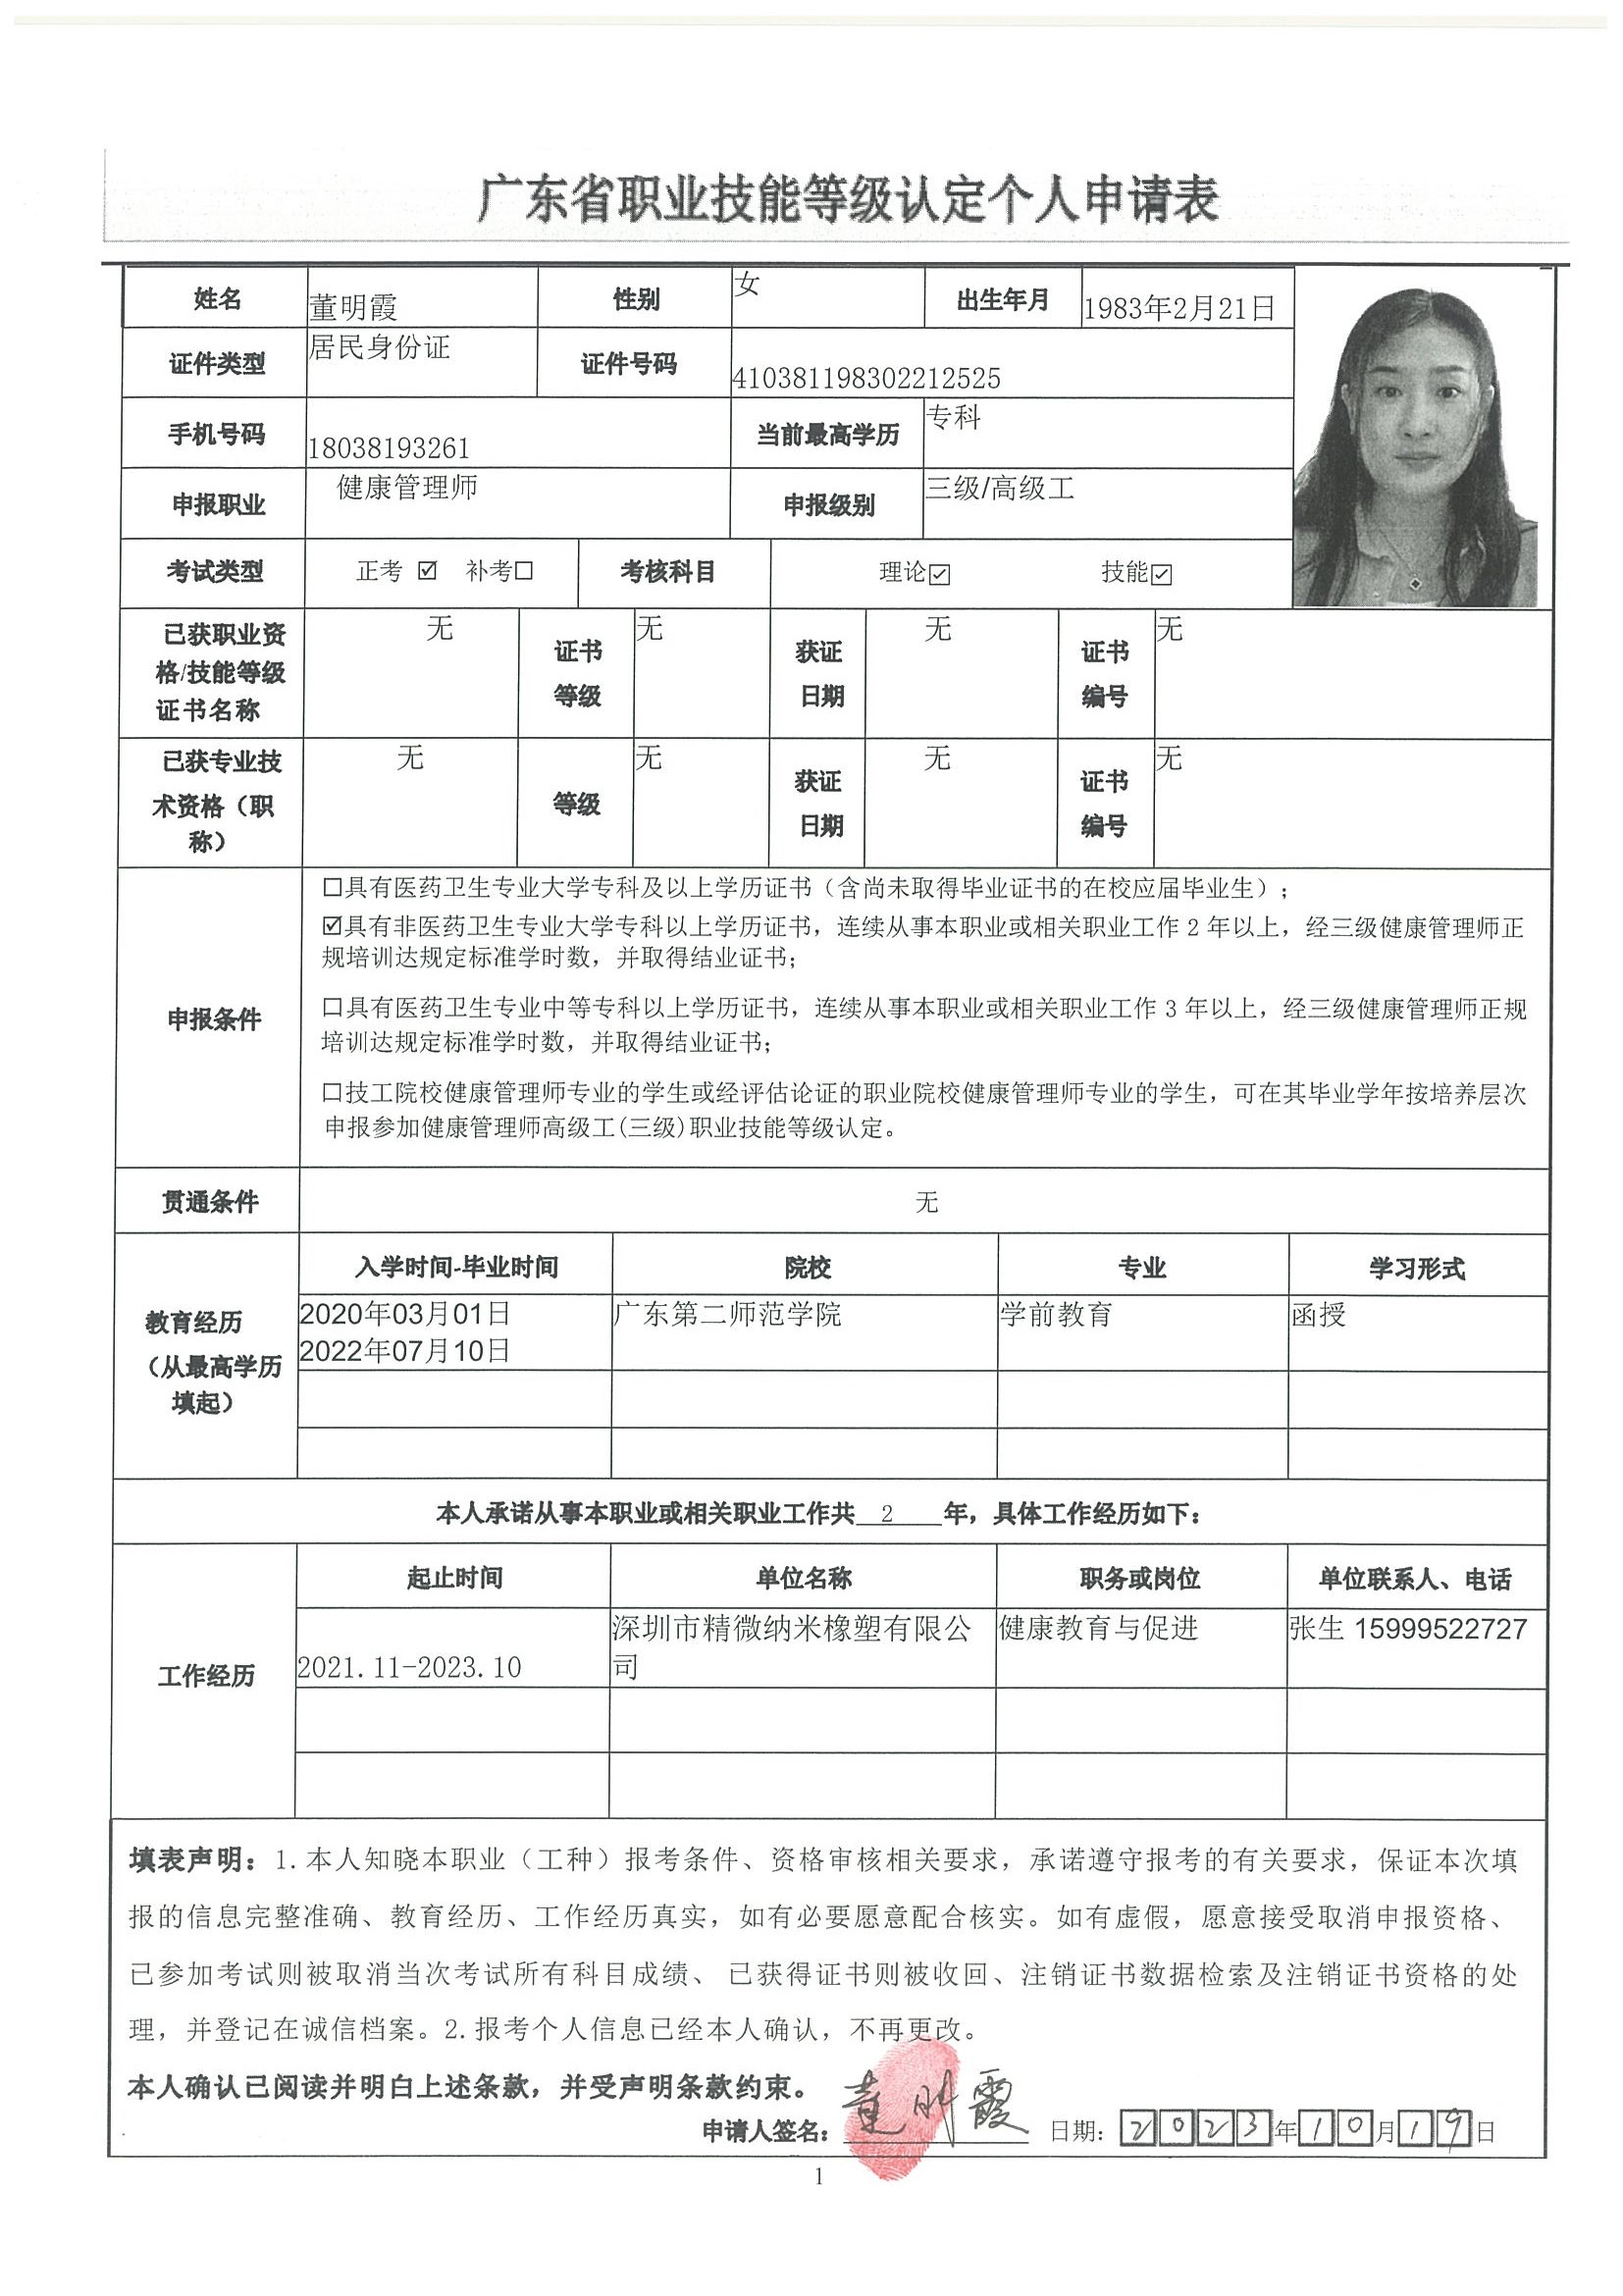 广东省职业技能等级认定个人申请表
姓名 董明霞 性别 女 出生年月 1983年2月21日
证件类型 居民身份证 证件号码 410381198302212525
手机号码 18038193261 当前最高学历 专科
申报职业 健康管理师 申报级别 三级/高级工
考试类型 正考 ☑ 补考☐ 考核科目 理论☑ 技能☑
已获职业资格/技能等级证书名称 无 证书等级 无 获证日期 无 证书编号 无
已获专业技术资格（职称） 无 等级 无 获证日期 无 证书编号 无
申报条件
☐具有医药卫生专业大学专科及以上学历证书（含尚未取得毕业证书的在校应届毕业生）；
☑具有非医药卫生专业大学专科以上学历证书，连续从事本职业或相关职业工作 2 年以上，经三级健康管理师正
规培训达规定标准学时数，并取得结业证书；
☐具有医药卫生专业中等专科以上学历证书，连续从事本职业或相关职业工作 3 年以上，经三级健康管理师正规
培训达规定标准学时数，并取得结业证书；
☐技工院校健康管理师专业的学生或经评估论证的职业院校健康管理师专业的学生，可在其毕业学年按培养层次
申报参加健康管理师高级工(三级)职业技能等级认定。
贯通条件 无
教育经历（从最高学历填起）
入学时间-毕业时间 院校 专业 学习形式
2020年03月01日 广东第二师范学院 学前教育 函授
2022年07月10日
本人承诺从事本职业或相关职业工作共 2 年，具体工作经历如下：
工作经历
起止时间 单位名称 职务或岗位 单位联系人、电话
2021.11-2023.10 深圳市精微纳米橡塑有限公司 健康教育与促进 张生 15999522727
填表声明：1.本人知晓本职业（工种）报考条件、资格审核相关要求，承诺遵守报考的有关要求，保证本次填
报的信息完整准确、教育经历、工作经历真实，如有必要愿意配合核实。如有虚假，愿意接受取消申报资格、
已参加考试则被取消当次考试所有科目成绩、 已获得证书则被收回、注销证书数据检索及注销证书资格的处
理，并登记在诚信档案。2.报考个人信息已经本人确认，不再更改。
本人确认已阅读并明白上述条款，并受声明条款约束。
申请人签名：董明霞 日期：2023年10月19日
1